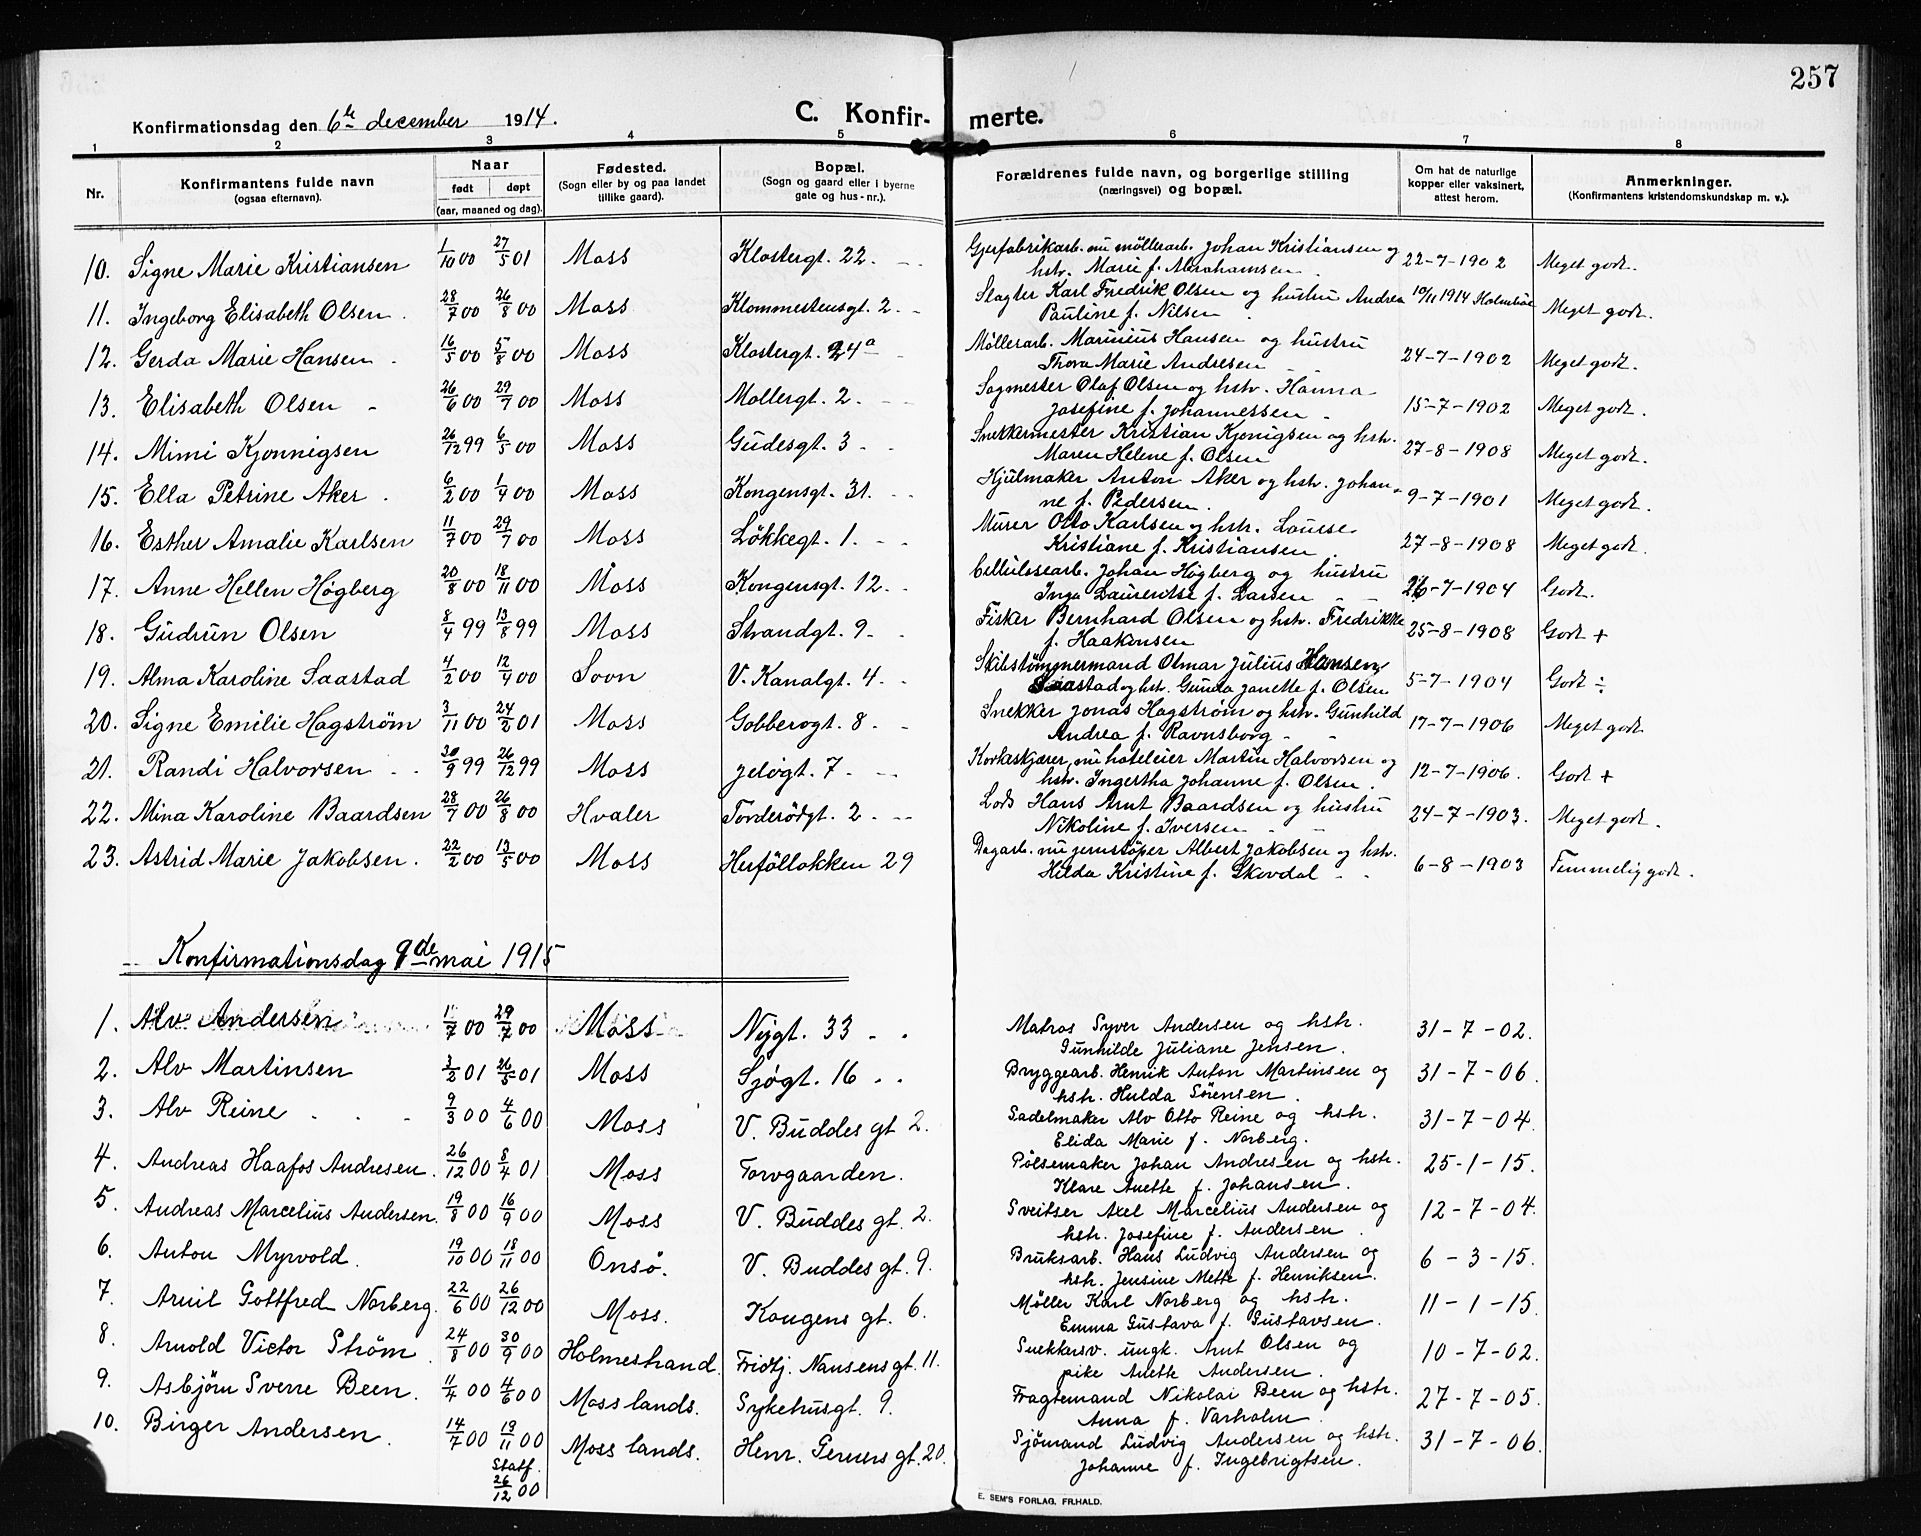 257
Konfirmationsdag den 6te december 1914.
C. Konfirmerte.
1 2 3 4 5 6 7 8
Nr.
Konfirmantens fulde navn
(ogsaa efternavn).
Naar
født døpt
(aar, maaned og dag).
Fødested.
(Sogn eller by og paa landet
tillike gaard).
Bopæl.
(Sogn og gaard eller i byerne
gate og hus-nr.).
Forældrenes fulde navn, og borgerlige stilling
(næringsvei) og bopæl.
Om hat de naturlige
kopper eller vaksinert,
attest herom.
Anmerkninger.
(Konfirmantens kristendomskundskap m. v.).
10. Signe Marie Kristiansen 1/10 00 27/5 01 Moss Klostergt. 22. Gjerfabrikarb. nu møllerarb. Johan Kristiansen og
hstr. Marie f. Abrahamsen 22-7-1902 Meget godt.
11. Ingeborg Elisabeth Olsen 28/7 00 26/8 00 Moss Klommestensgt. 2. Slagter Karl Fredrik Olsen og hustru Andrea 10/11 1914 Holmboe
Pauline f. Nilsen Meget godt.
12. Gerda Marie Hansen 16/5 00 5/8 00 Moss Klostergt. 24a Møllerarb. Marinius Hansen og hustru
Thora Marie Andresen 24-7-1902 Meget godt.
13. Elisabeth Olsen 26/6 00 29/7 00 Moss Mollergt. 2. Sagmester Olaf Olsen og hstr. Hanna
Josefine f. Johannessen 15-7-1902 Meget godt.
14. Mimi Kjonnigsen 26/12 99 6/5 00 Moss Gudesgt. 3 Snekkermester Kristian Kjonigsen og hstr.
Maren Helene f. Olsen 27-8-1908 Meget godt.
15. Ella Petrine Aker 6/2 00 1/4 00 Moss Kongensgt. 31. Hjulmaker Anton Aker og hstr. Johan-
ne f. Pedersen. 9-7-1901 Meget godt.
16. Esther Amalie Karlsen 11/7 00 29/7 00 Moss Løkkegt. 1. Murer Otto Karlsen og hstr. Lousse
Kristiane f. Kristiansen 27-8-1908 Meget godt.
17. Anne Hellen Høgberg 20/8 00 18/11 00 Moss Kongensgt. 12. Cellulosearb. Johan Høgberg og hustru
Inga Laurentse f. Larsen 26-7-1904 Godt.
18. Gudrun Olsen 8/4 99 13/8 99 Moss Strandgt. 9 Fisker Bernhard Olsen og hstr. Fredrikke
f. Haakensen 25-8-1908 Godt +
19. Alma Karoline Saastad 4/2 00 12/4 00 Soon V. Kanalgt. 4 Skibstømmermand Olmar Julius Hansen
Saastad og hstr. Gunda Janette f. Olsen 5-7-1904 Godt ÷
20. Signe Emilie Hagstrøm 3/11 00 24/2 01 Moss Gobberogt. 8 Snekker Jonas Hagstrøm og hstr. Gunhild
Andrea f. Ravnsborg 17-7-1906 Meget godt
21. Randi Halvorsen 30/9 99 26/12 99 Moss Jeløgt. 7 Korkaskjærer, nu hoteleier Martin Halvorsen og
hstr. Ingertha Johanne f. Olsen. 12-7-1906. Godt +
22. Mina Karoline Baardsen 28/7 00 26/8 00 Hvaler Torderødgt. 2 Lods Hans Arnt Baardsen og hustru
Nikoline f. Iversen 24-7-1903. Meget godt.
23. Astrid Marie Jakobsen. 22/2 00 13/5 00 Moss Herføllokken 29 Dagarb. nu jernstøper Albert Jakobsen og hstr.
Hilda Kristine f. Skovdal 6-8-1903 Temmelig godt.
Konfirmationsdag 9de mai 1915
1. Alv Andersen 1/7 00 29/7 00 Moss Nygt. 33 Matros Syver Andersen og hstr.
Gunhilde Juliane Jensen. 31-7-02.
2. Alv Martinsen 3/2 01 26/5 01 Moss Sjøgt. 16 Bryggearb. Henrik Anton Martinsen og
hstr. Hulda Sørensen. 31-7-06.
3. Alv Reine 9/3 00 4/6 00 Moss V. Buddes gt 2. Sadelmaker Alv Otto Reine og hstr.
Elida Marie f. Norberg. 31-7-04.
4. Andreas Haafos Andresen. 26/12 00 8/4 01 Moss Torvgaarden. Pølsemaker Johan Andresen og hstr.
Klare Anette f. Johansen. 25-1-15.
5. Andreas Marcelius Andersen. 19/8 00 16/9 00 Moss V. Buddes gt. 2. Sveitser Axel Marcelius Andersen og
hstr. Josefine f. Andersen. 12-7-04.
6. Anton Myrvold. 19/10 00 18/11 00 Onsø. V. Buddes gt. 9. Bruksarb. Hans Ludvig Andersen og
hstr. Jensine Mette f. Henriksen. 6-3-15.
7. Arnil Gottfred Norberg. 22/6 00 26/12 00 Moss. Kongens gt. 6. Møller Karl Norberg og hstr.
Emma Gustava f. Gustavsen. 11-1-15.
8. Arnold Victor Strøm. 24/8 00 30/9 00 Holmestrand. Fridtj. Nansens gt. 11. Snekkersv. ungk. Arnt Olsen og
pike Anette Andersen. 10-7-02.
9. Asbjørn Sverre Been. 11/4 00 4/6 00 Moss lands. Sykehusgt. 9. Fragtemand Nikolai Been og hstr.
Anna f. Varholm. 27-7-05.
10. Birger Andersen. 14/7 00 19/11 00 Moss lands. Henr. Gerners gt. 20. Sjømand Ludvig Andersen og hstr.
Johanne f. Ingebrigtsen. 31-7-06.
Statf.
26/12 00
E. SEM'S FORLAG. FR.HALD.